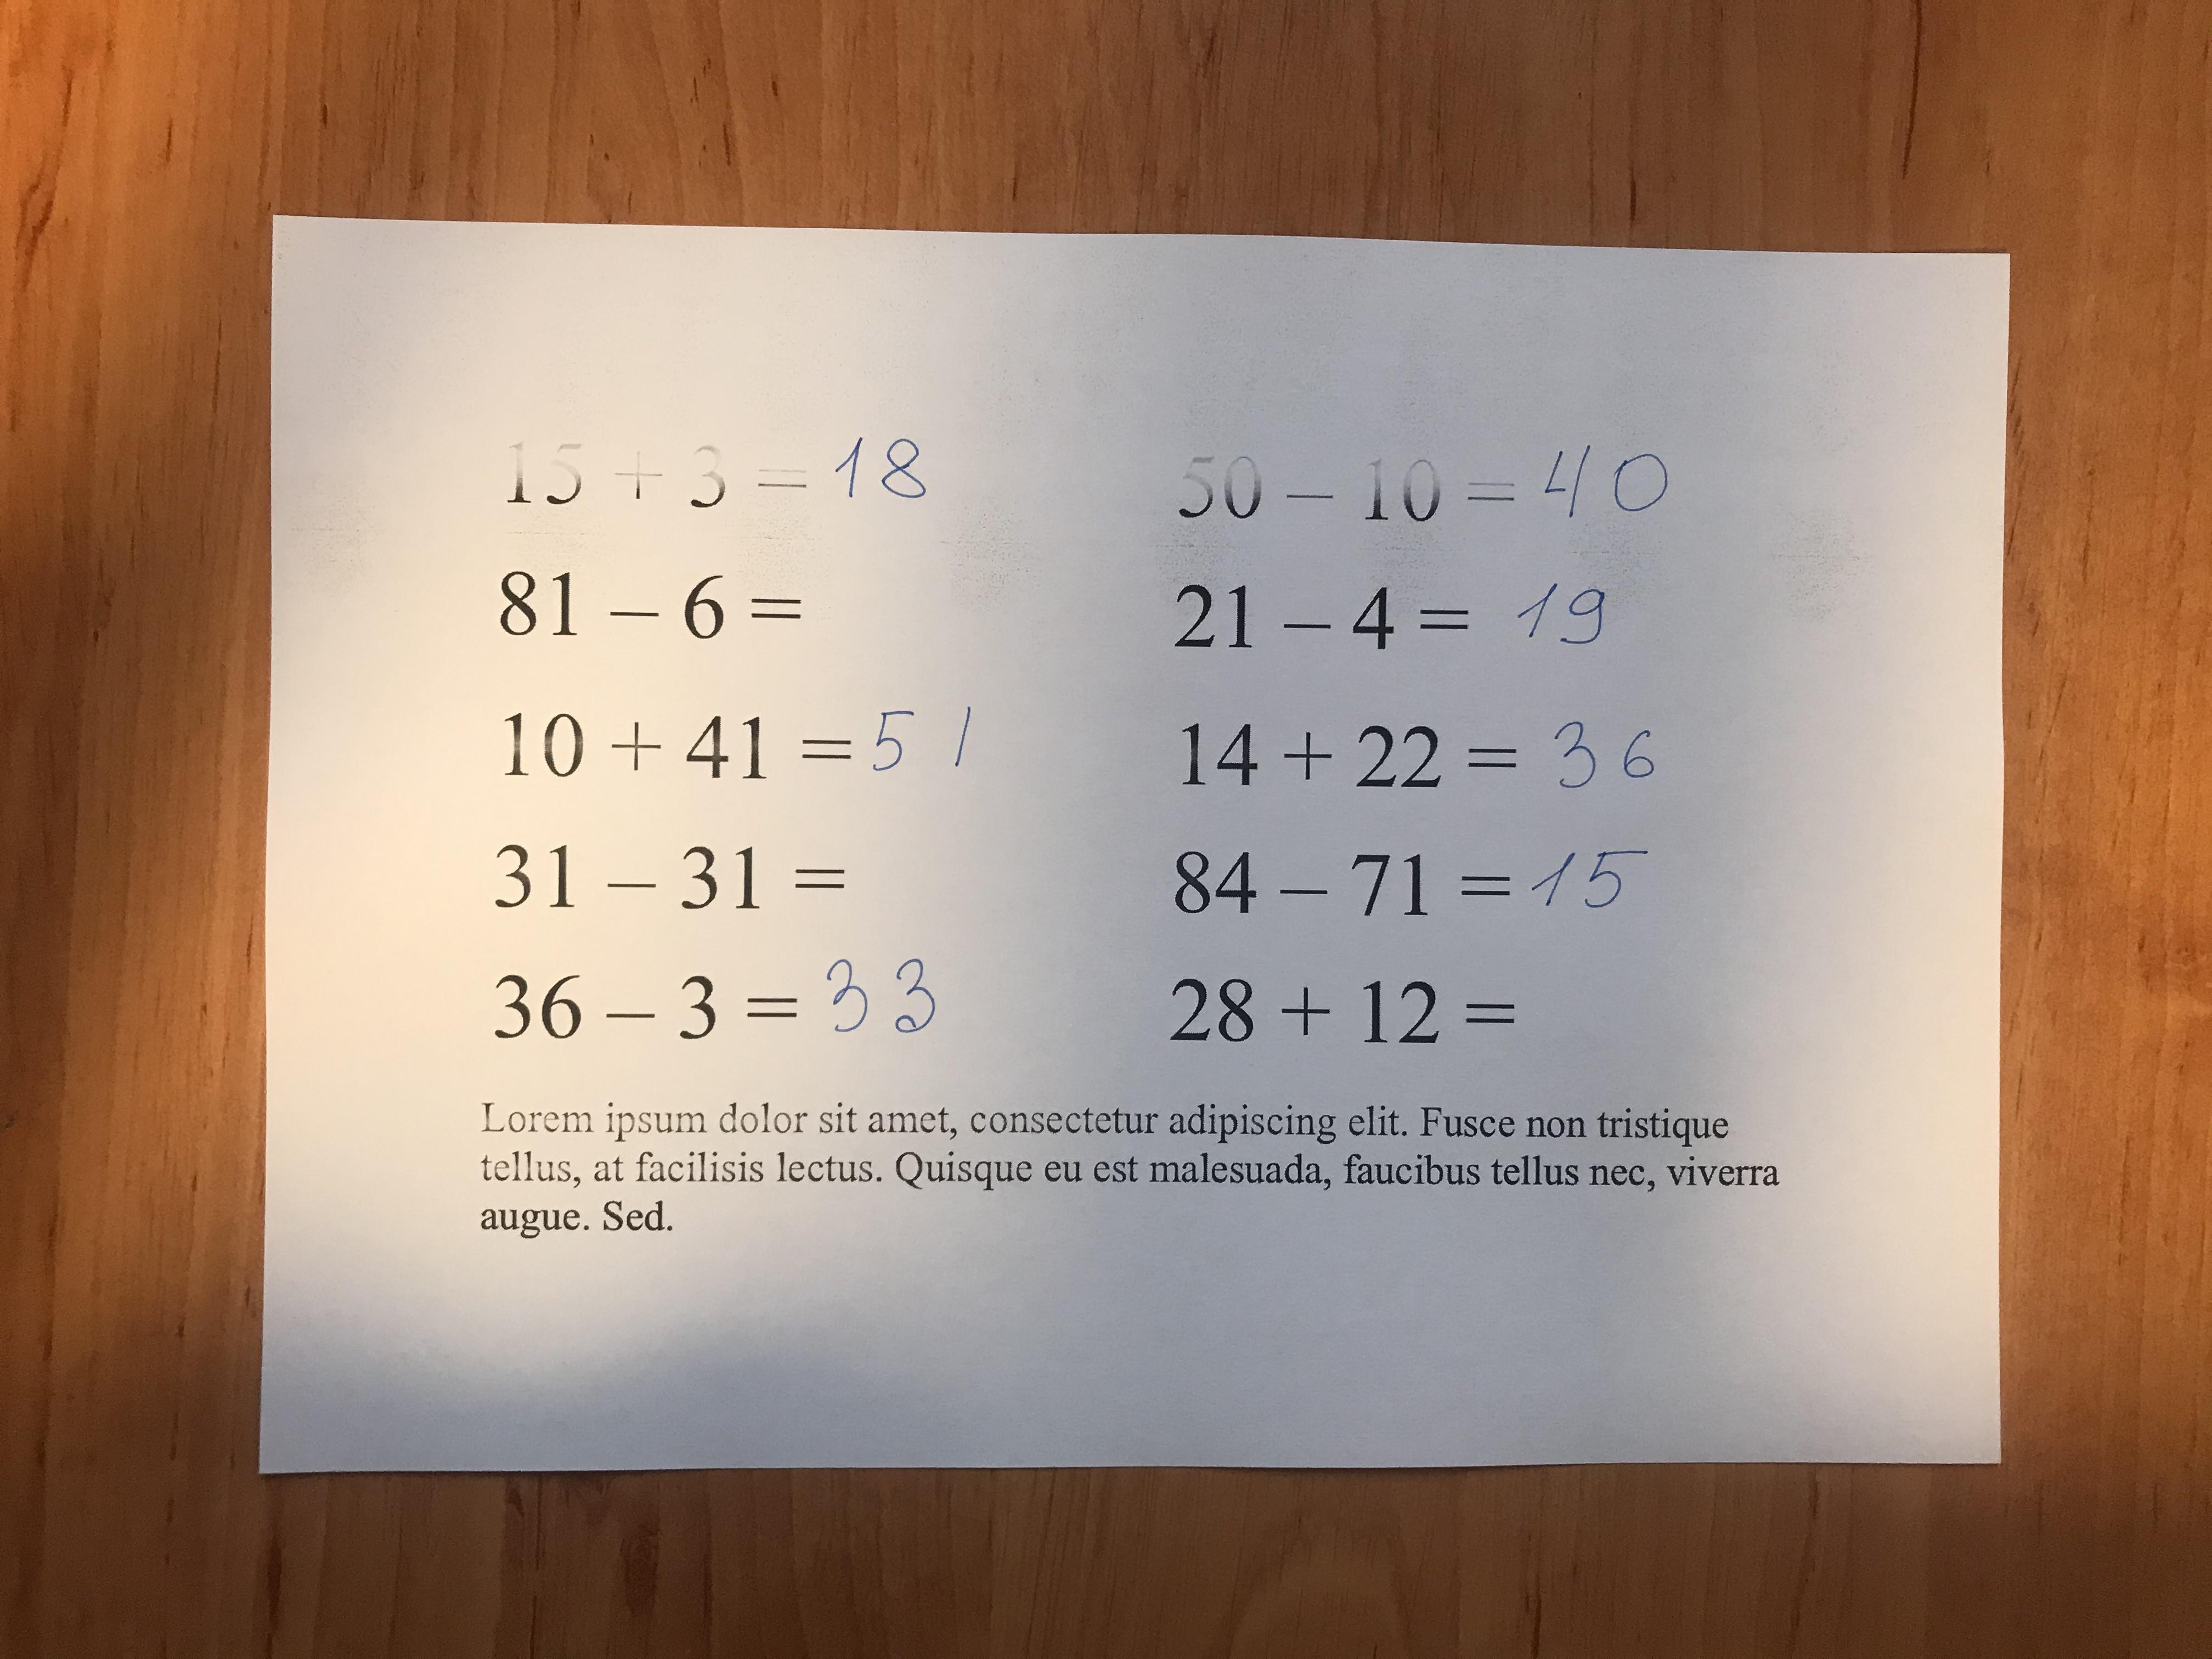 15 + 3 = 18
81 – 6 =
10 + 41 = 51
31 – 31 =
36 – 3 = 33
50 – 10 = 40
21 – 4 = 19
14 + 22 = 36
84 – 71 = 15
28 + 12 =
Lorem ipsum dolor sit amet, consectetur adipiscing elit. Fusce non tristique
tellus, at facilisis lectus. Quisque eu est malesuada, faucibus tellus nec, viverra
augue. Sed.